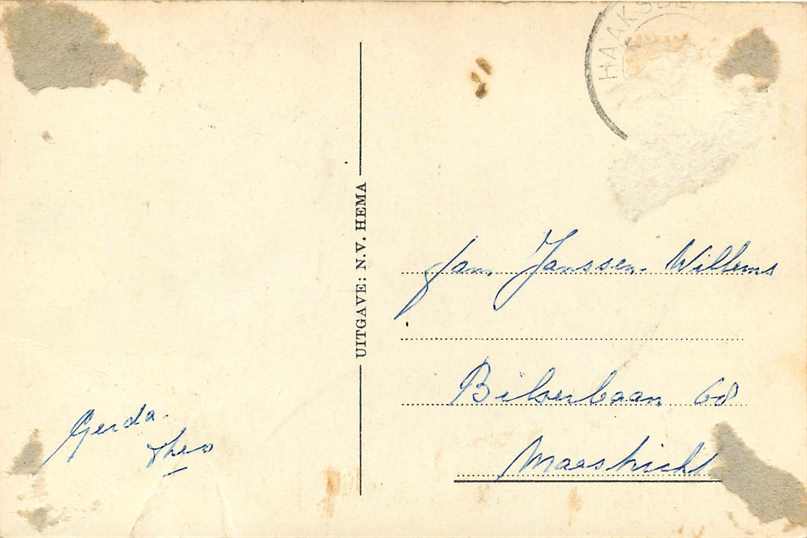 HAAKSBE
UITGAVE: N.V. HEMA
fam. Janssen-Willems
68
Maastricht
Gerda.
Theo